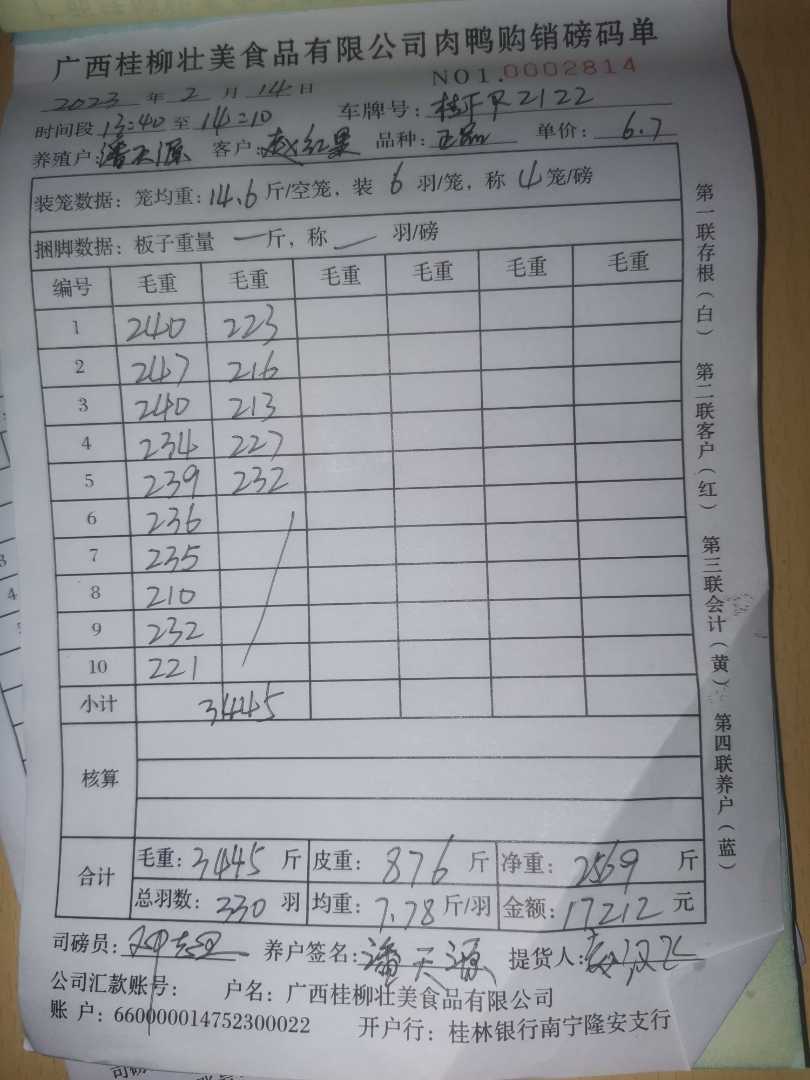 广西桂柳壮美食品有限公司肉鸭购销磅码单
2023 年 2 月 14 日 NO1.0002814
时间段 13:40 至 14:10 车牌号: R2122
养殖户: 潘天源 客户: 赵红果 品种: 正品 单价: 6.7
装笼数据: 笼均重: 14.6 斤/空笼, 装 6 羽/笼, 称 4 笼/磅
捆脚数据: 板子重量 一 斤, 称 一 羽/磅
编号 毛重 毛重 毛重 毛重 毛重 毛重
1 240 223
2 247 216
3 240 213
4 234 227
5 239 232
6 236
7 235
8 210
9 232
10 221
小计 3445
核算
合计 毛重: 3445 斤 皮重: 876 斤 净重: 2569 斤
总羽数: 330 羽 均重: 7.78 斤/羽 金额: 17212 元
司磅员: 养户签名: 潘天源 提货人:
公司汇款账号: 户名: 广西桂柳壮美食品有限公司
账 户: 660000014752300022 开户行: 桂林银行南宁隆安支行
第一联存根(白) 第二联客户(红) 第三联会计(黄) 第四联养户(蓝)